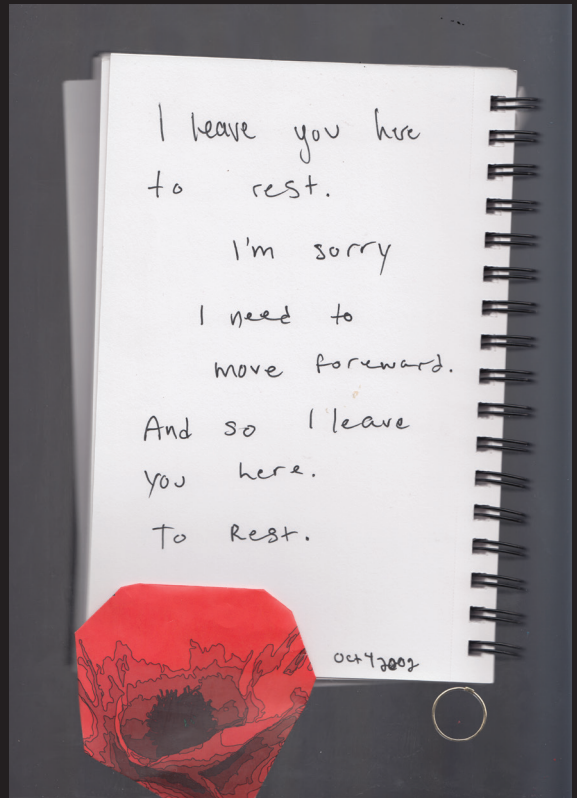 I leave you here
to rest.
I'm sorry
I need to
move foreward.
And so I leave
you here.
To Rest.
Oct 4 2002